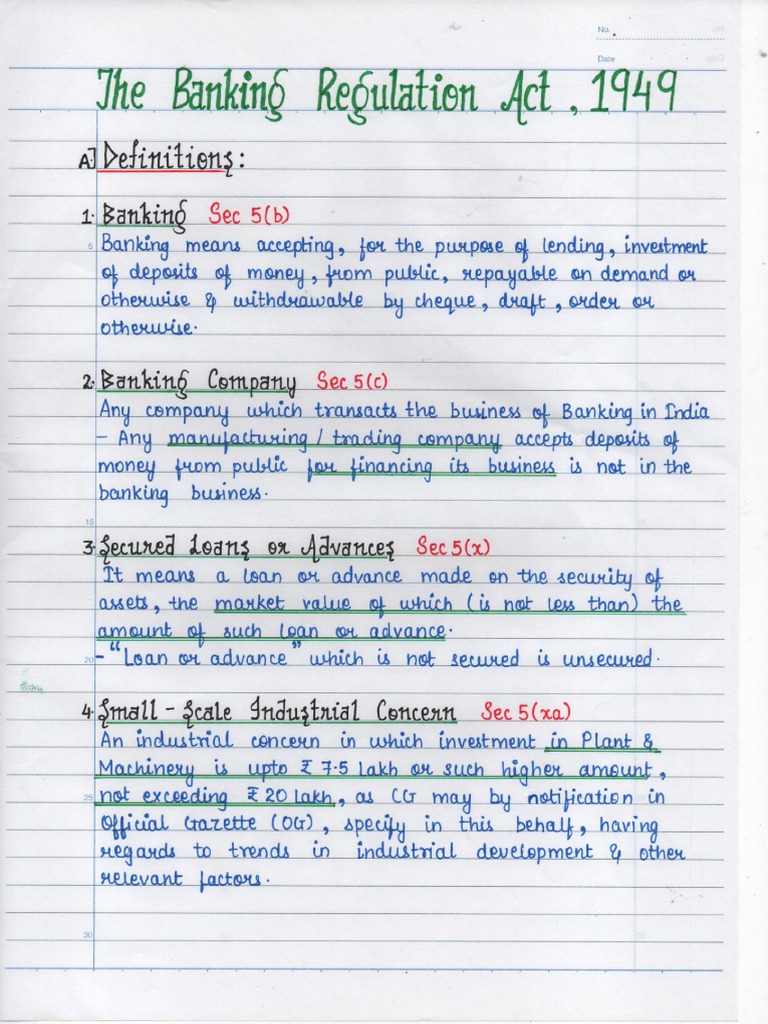 No.
Date
The Banking Regulation Act, 1949
A] Definitions:
1. Banking Sec 5(b)
5 Banking means accepting, for the purpose of lending, investment
of deposits of money, from public, repayable on demand or
otherwise & withdrawable by cheque, draft, order or
otherwise.
2. Banking Company Sec 5(c)
Any company which transacts the business of Banking in India
- Any manufacturing / trading company accepts deposits of
money from public for financing its business is not in the
banking business.
15
3. Secured Loans or Advances Sec 5(x)
It means a loan or advance made on the security of
assets, the market value of which (is not less than) the
amount of such loan or advance.
20 - "Loan or advance" which is not secured is unsecured.
4. Small - Scale Industrial Concern Sec 5(xa)
An industrial concern in which investment in Plant &
Machinery is upto ₹ 7.5 Lakh or such higher amount,
25 not exceeding ₹ 20 Lakh, as CG may by notification in
Official Gazette (OG), specify in this behalf, having
regards to trends in industrial development & other
relevant factors.
30